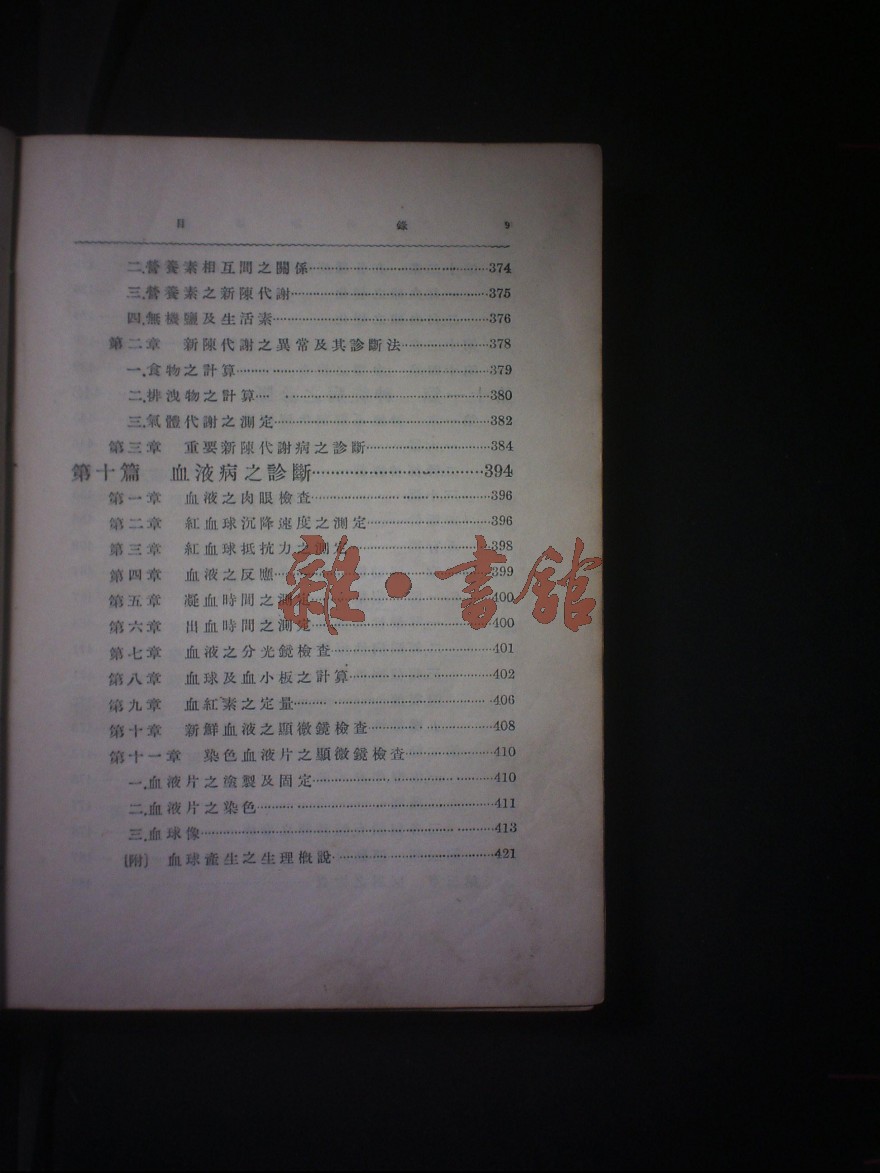 目 錄 9
二.營養素相互間之關係……374
三.營養素之新陳代謝……375
四.無機鹽及生活素……376
第二章 新陳代謝之異常及其診斷法……378
一.食物之計算……379
二.排洩物之計算……380
三.氣體代謝之測定……382
第三章 重要新陳代謝病之診斷……384
第十篇 血液病之診斷……394
第一章 血液之肉眼檢查……396
第二章 紅血球沉降速度之測定……396
第三章 紅血球抵抗力之測定……398
第四章 血液之反應……399
第五章 凝血時間之測定……400
第六章 出血時間之測定……400
雜·書館
第七章 血液之分光鏡檢查……401
第八章 血球及血小板之計算……402
第九章 血紅素之定量……406
第十章 新鮮血液之顯微鏡檢查……408
第十一章 染色血液片之顯微鏡檢查……410
一.血液片之塗製及固定……410
二.血液片之染色……411
三.血球像……413
〔附〕 血球產生之生理概說……421